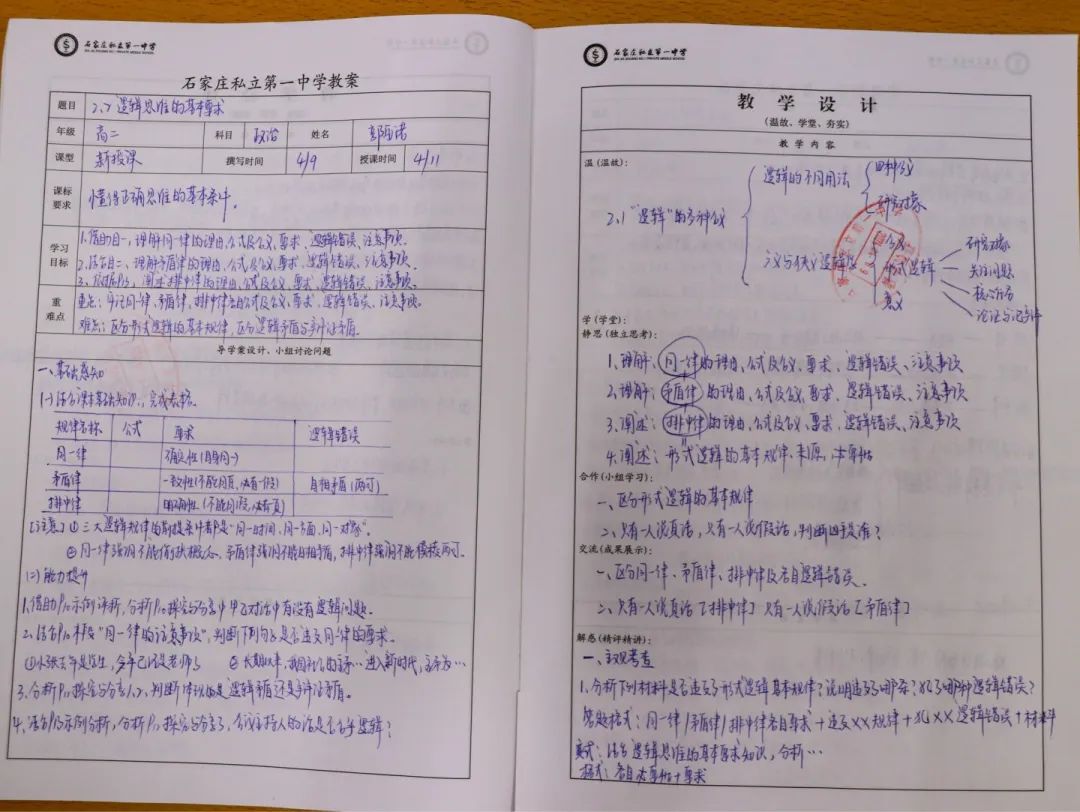 石家庄私立第一中学
石家庄私立第一中学教案
题目 2.2 逻辑思维的基本要求
年级 高二 科目 政治 姓名
课型 新授课 撰写时间 4/9 授课时间 4/11
课标要求 懂得正确思维的基本条件。
学习目标
1.借助目一,理解同一律的理由、公式及含义、要求、逻辑错误、注意事项。
2.结合目二、理解矛盾律的理由、公式及含义、要求、逻辑错误、注意事项。
3.阐述排中律的理由、公式及含义、要求、逻辑错误、注意事项。
重难点
重点:牢记同一律、矛盾律、排中律各自公式及含义、要求、逻辑错误、注意事项。
难点:区分形式逻辑的基本规律,区分逻辑矛盾与辩证矛盾。
导学案设计、小组讨论问题
一、基础感知
(一)结合课本基础知识,完成表格。
规律名称 公式 要求 逻辑错误
同一律 确定性(自身同一)
矛盾律 一致性(不能同真,必有一假) 自相矛盾(两可)
排中律 明确性(不能同假,必有一真)
[注意]①三大逻辑规律的前提条件都是“同一时间、同一方面、同一对象”。
②同一律强调不能偷换概念、矛盾律强调不能自相矛盾,排中律强调不能模棱两可。
(二)能力提升
1.借助P₁₀示例评析,分析P₁₀探究与分享中甲乙对话中有没有逻辑问题。
2.结合P₁₁本段“同一律的注意事项”,判断下列句子是否违反同一律的要求。
①小张去年是学生,今年已经是老师了 ②长期以来,我国社会的主要…进入新时代,主要为…
3.分析P₁₂探究与分享1、2,判断体现的是逻辑矛盾还是辩证矛盾。
4.结合P₁₃示例分析,分析P₁₃探究与分享3,主持人的话是否合乎逻辑?
石家庄私立第一中学
教学设计
(温故、学堂、夯实)
教学内容
温(温故):
2.1“逻辑”的多种含义
逻辑的不同用法
四种含义
研究对象
含义
形式逻辑
意义
研究对象
关注问题
核心内容
学(学堂):
静思(独立思考):
1.理解:同一律的理由、公式及含义、要求、逻辑错误、注意事项
2.理解:矛盾律的理由、公式及含义、要求、逻辑错误、注意事项
3.阐述:排中律的理由、公式及含义、要求、逻辑错误、注意事项
4.阐述:形式逻辑的基本规律来源,本事物
合作(小组学习):
一、区分形式逻辑的基本规律
二、只有一人说真话,只有一人说假话,判断四季谁?
交流(成果展示):
一、区分同一律、矛盾律、排中律及各自逻辑错误.
二、只有一人说真话[排中律] 只有一人说假话[矛盾律]
解惑(精评精讲):
一、主观考查
1.分析下列材料是否违反了形式逻辑基本规律?说明违反了哪条?犯了哪种逻辑错误?
答题格式:同一律/矛盾律/排中律各自要求+违反××规律+犯××逻辑错误+材料
变式:结合逻辑思维的基本要求知识,分析…
格式:各自+要求